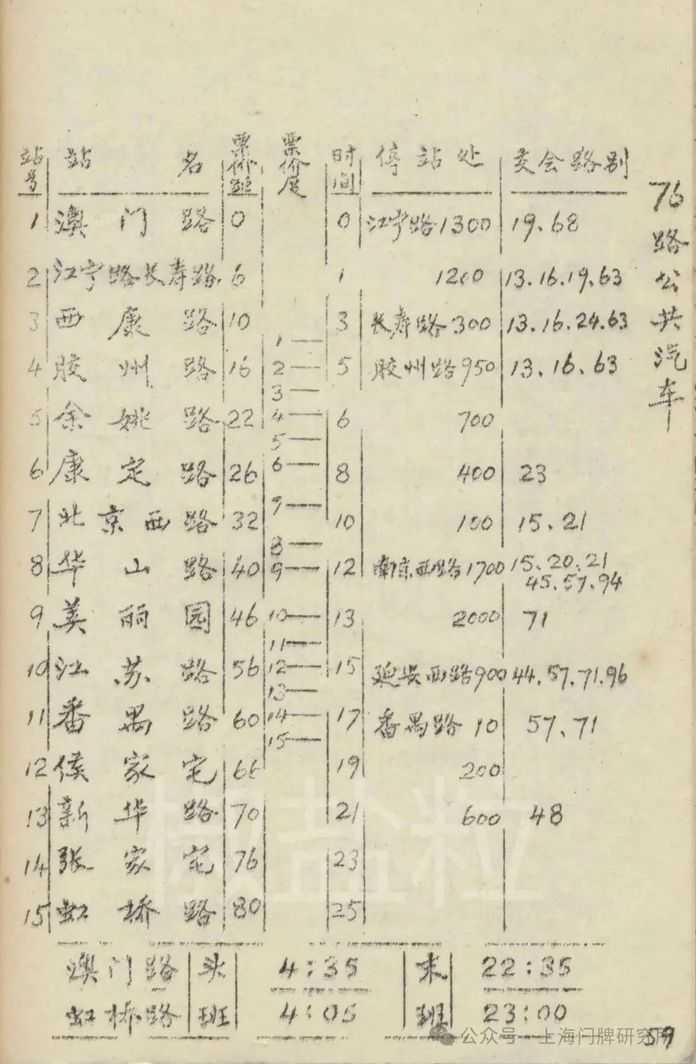 76路公共汽车
站号 站名 票价距 票价尺 时间 停站处 交会路别
1 澳门路 0 0 江宁路1300 19.68
2 江宁路长寿路 6 1 1200 13.16.19.63
3 西康路 10 3 长寿路300 13.16.24.63
1—
4 胶州路 16 2— 5 胶州路950 13.16.63
3—
5 余姚路 22 4— 6 700
5—
6 康定路 26 6— 8 400 23
7—
7 北京西路 32 10 100 15.21
8—
8 华山路 40 9— 12 南京西路1700 15.20.21
45.57.94
9 美丽园 46 10— 13 2000 71
11—
10 江苏路 56 12— 15 延安西路900 44.57.71.96
13—
11 番禺路 60 14— 17 番禺路 10 57.71
15—
12 侯家宅 66 19 200
13 新华路 70 21 600 48
14 张家宅 76 23
15 虹桥路 80 25
澳门路 头 4:35 末 22:35
虹桥路 班 4:05 班 23:00
公众号·上海门牌研究所
59